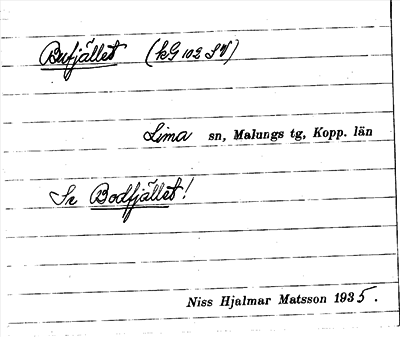 Bufjället (kG 102 SV)
Lima sn, Malungs tg, Kopp. län
Se Bodfjället!
Niss Hjalmar Matsson 1935.